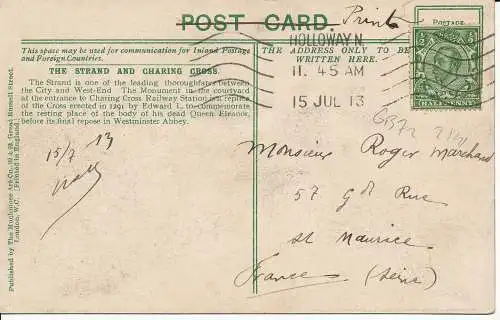 POST CARD.
Print
POSTAGE
HALFPENNY
HOLLOWAY N.
11. 45 AM
15 JUL 13
This space may be used for communication for Inland Postage
and Foreign Countries.
THE ADDRESS ONLY TO BE
WRITTEN HERE.
THE STRAND AND CHARING CROSS.
The Strand is one of the leading thoroughfares between
the City and West-End. The Monument in the courtyard
at the entrance to Charing Cross Railway Station is a replica
of the Cross erected in 1291 by Edward I., to commemorate
the resting place of the body of his dead Queen Eleanor,
before its final repose in Westminster Abbey.
15/7 13
Monsieur Roger Marchand
57 Gd Rue
St Maurice
France (Seine)
Published by The Photochrom Art Co., Great Russell Street,
London, W.C. (Printed in England)